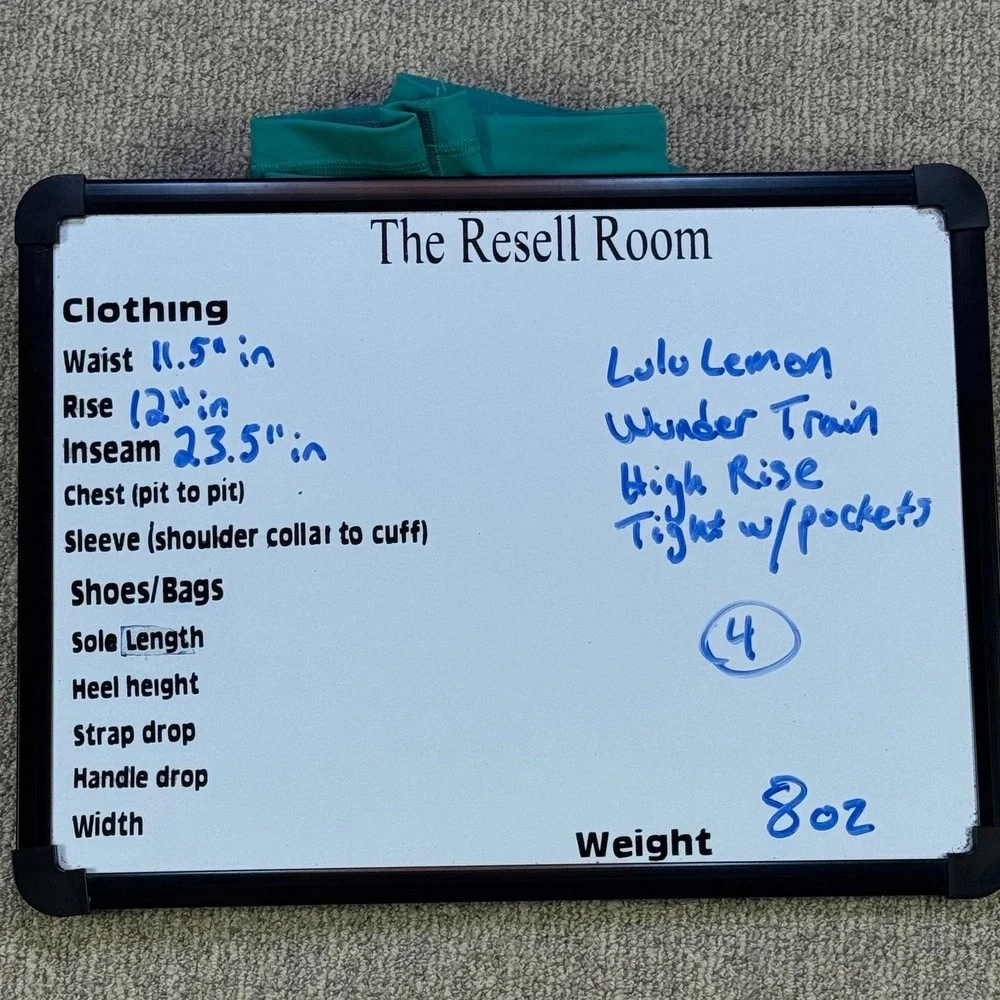 The Resell Room
Clothing
Waist 11.5" in
Rise 12" in
Inseam 23.5" in
Chest (pit to pit)
Sleeve (shoulder collar to cuff)
Shoes/Bags
Sole Length
Heel height
Strap drop
Handle drop
Width
Lulu Lemon
Wunder Train
High Rise
Tight w/pockets
4
Weight 8oz